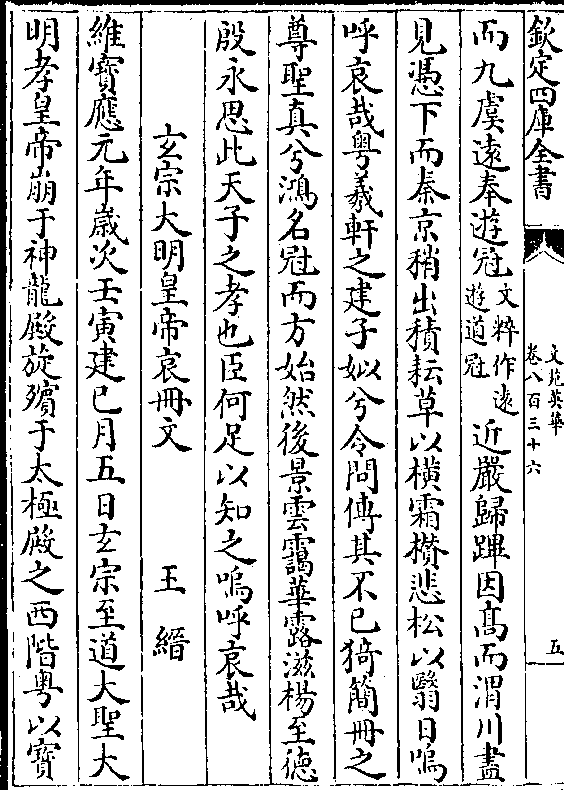 欽定四庫全書
文苑英華
卷八百三十六
五
而九虞遠奉遊冠文粹作遠遊道冠近嚴歸蹕因髙而渭川盡
見憑下而秦京稍出積耘草以橫霜攢悲松以翳日嗚
呼哀哉粤羲軒之建子姒兮令問傳其不已猗簡冊之
尊聖真兮鴻名冠而方始然後景雲靄華露滋楊至徳
殷永思此天子之孝也臣何足以知之嗚呼哀哉
玄宗大明皇帝哀冊文 王縉
維寳應元年歳次壬寅建巳月五日玄宗至道大聖大
明孝皇帝崩于神龍殿旋殯于太極殿之西階粤以寳